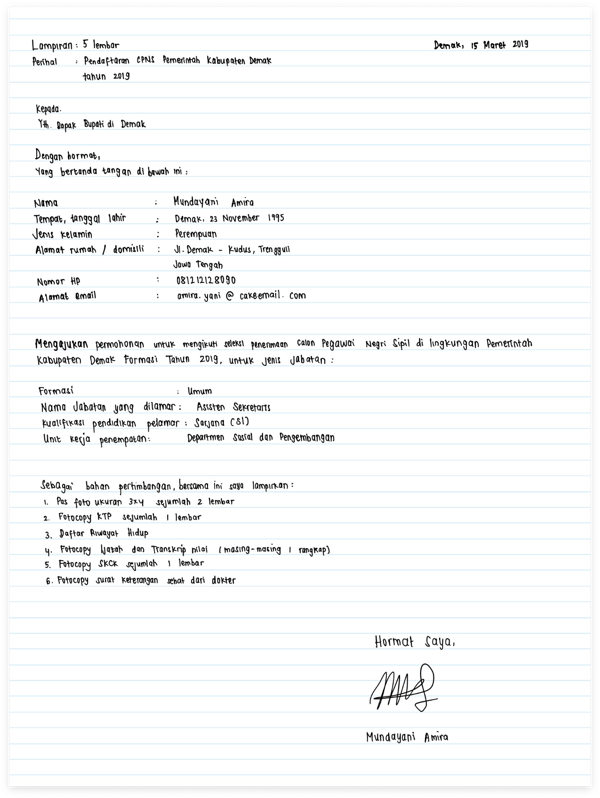 Lampiran : 5 lembar
Demak, 15 Maret 2019
Perihal : Pendaftaran CPNS Pemerintah Kabupaten Demak
tahun 2019
Kepada.
Yth. Bapak Bupati di Demak
Dengan hormat,
Yang bertanda tangan di bawah ini :
Nama : Mundayani Amira
Tempat, tanggal lahir : Demak, 23 November 1995
Jenis kelamin : Perempuan
Alamat rumah / domisili : Jl. Demak - Kudus, Trengguli
Jawa Tengah
Nomor HP : 081212128090
Alamat email : amira.yani @ cakeemail. com
Mengajukan permohonan untuk mengikuti seleksi penerimaan Calon Pegawai Negri Sipil di lingkungan Pemerintah
Kabupaten Demak Formasi Tahun 2019, untuk jenis jabatan :
Formasi : Umum
Nama Jabatan yang dilamar : Asisten Sekretaris
Kualifikasi pendidikan pelamar : Sarjana (S1)
Unit kerja penempatan: Departmen Sosial dan Pengembangan
Sebagai bahan pertimbangan, bersama ini saya lampirkan :
1. Pas foto ukuran 3x4 sejumlah 2 lembar
2. Fotocopy KTP sejumlah 1 lembar
3. Daftar Riwayat Hidup
4. Fotocopy Ijazah dan Transkrip nilai (masing-masing 1 rangkap)
5. Fotocopy SKCK sejumlah 1 lembar
6. Fotocopy surat keterangan sehat dari dokter
Hormat saya,
Mundayani Amira